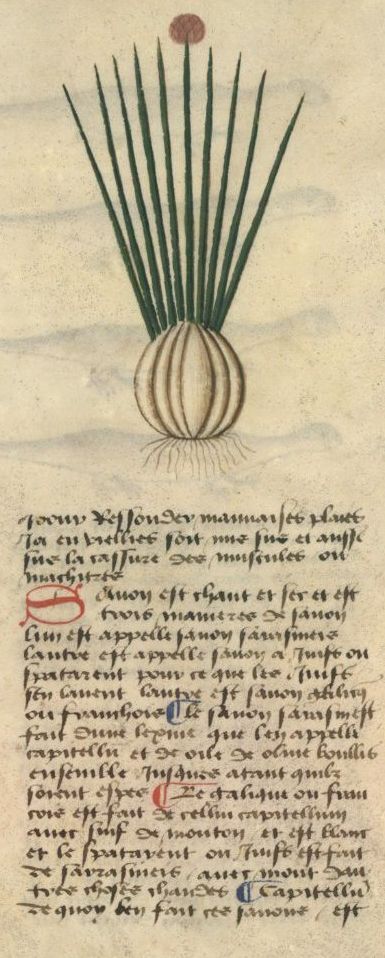 pour Ressouder mauuaises plaies
Ja en viellies soit mis sus et aussi
sus la cassure des muscules ou
machures
Sauon est chault et sec et est
trois manieres de sauon
lun est appelle sauon sarasinois
lautre est appelle sauon a Juifs ou
spatarent pour ce que les Juifs
sen lauent lautre est sauon galiq
ou franchois ¶ Le sauon sarasin est
fait dune lexiue que len appelle
capitellu et de oile de oliue boullis
ensemble Jusques atant quilz
soient espes ¶ Le galique ou fran
cois est fait de cellui capitellum
auec suif de mouton et est blanc
et le spatarent ou Juifs est fait
de sarrasinois auec mout dau
tres choses chaudes ¶ Capitellu
de quoy len fait ces sauons est